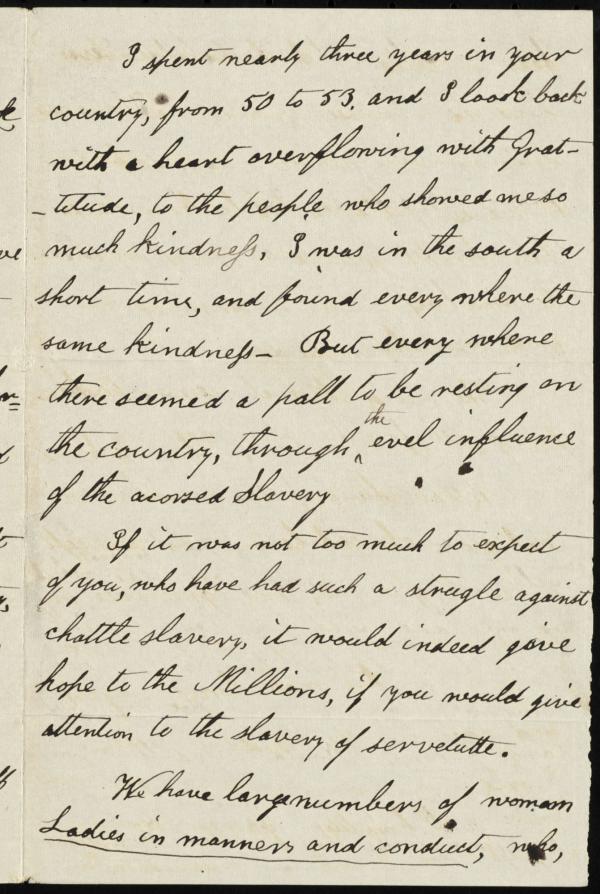 I spent nearly three years in your
country, from 50 to 53. and I loock back
with a heart overflowing with Grat-
-titude, to the people who showed me so
much kindness, I was in the south a
short time, and found every where the
same kindness— But every where
there seemed a pall to be resting on
the country, through the evel influence
of the acorsed Slavery
If it was not too much to expect
of you, who have had such a strugle against
chattle slavery, it would indeed give
hope to the Millions, if you would give
attention to the slavery of servetutte.
We have large numbers of women
Ladies in manners and conduct, who,